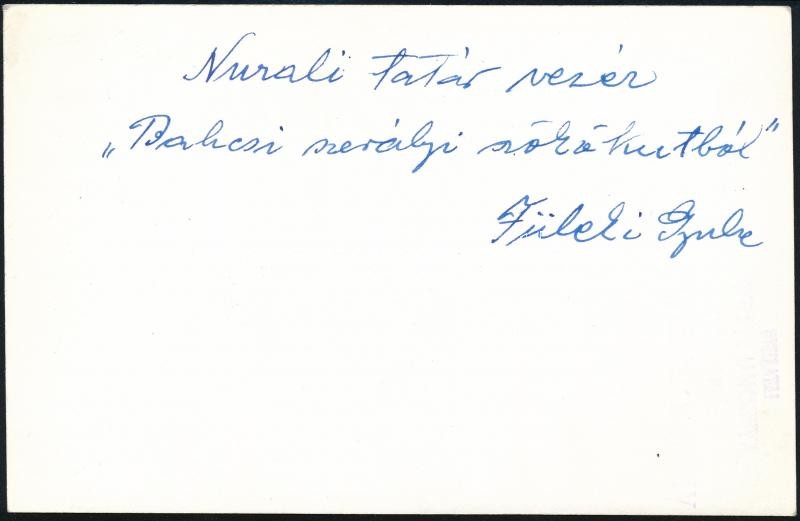 Nurali tatár vezér
„Bahcsi szerályi szökőkutból"
Fülöki Gyula